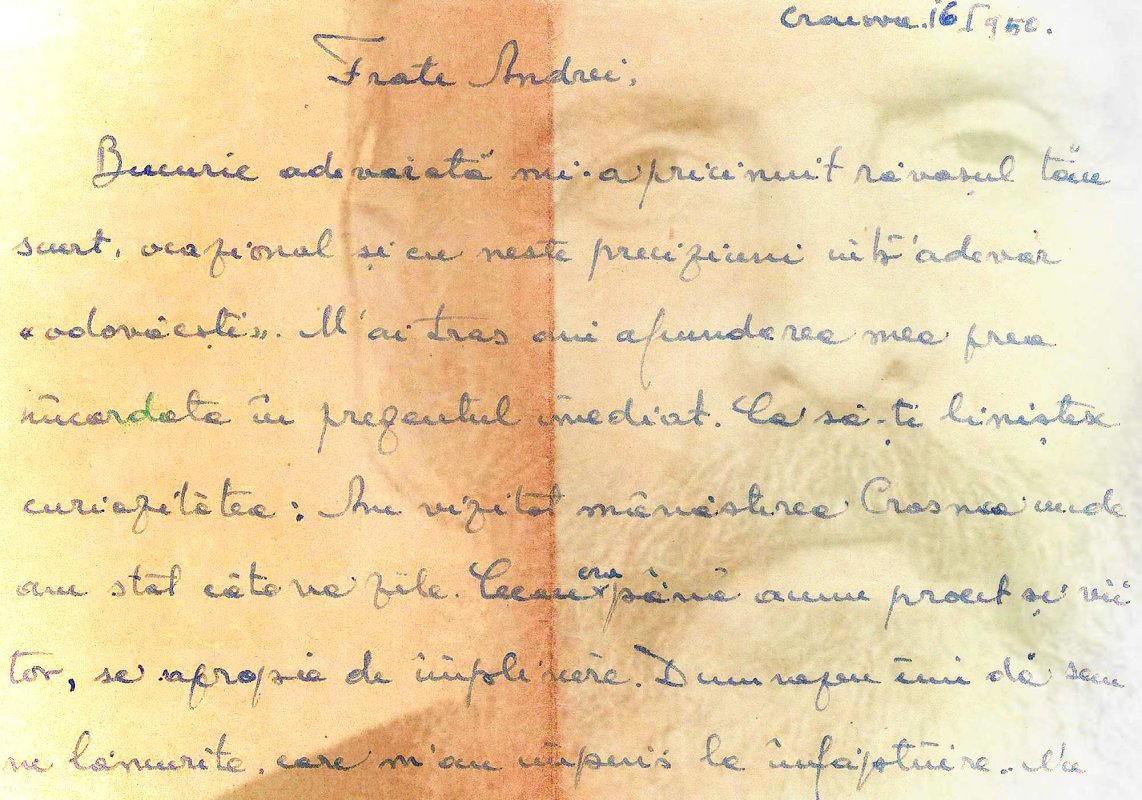 Craiova. 16 I 950.
Frate Andrei,
Bucurie adevarată mi-a pricinuit răvașul tău
scurt, ocazional și cu neste preciziuni într'adevăr
«vdovăești». M'ai tras din afundarea mea prea
încordata în prezentul imediat. Ca să-ți liniștex
curiozitatea: Am vizitat mănăstirea Crasnea unde
am stat câte va zile. Ceeace era până acum proect și vii
tor, se apropie de împlinire. Dumnezeu îmi dă sem
ne lămurite, care m'au împins la înfăptuire. Nu